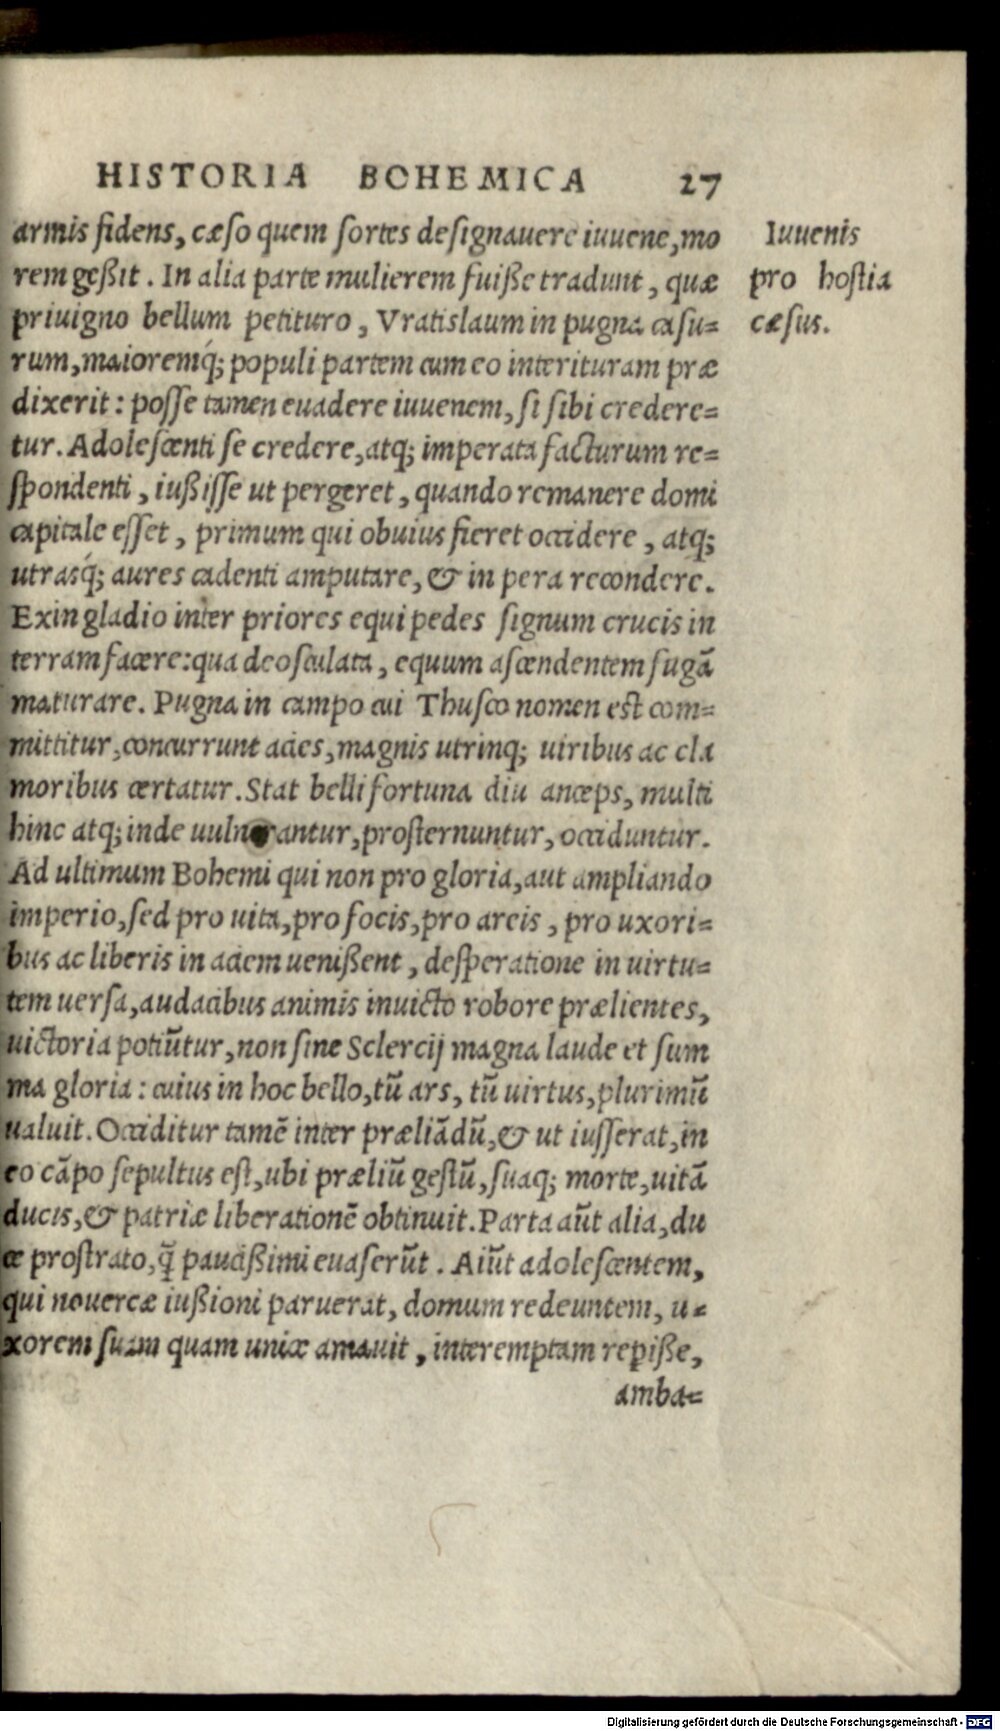 HISTORIA BOHEMICA 27
armis fidens, cæso quem sortes designauere iuuene, mo
rem geßit. In alia parte mulierem fuiße tradunt, quæ
priuigno bellum petituro, Vratislaum in pugna casu=
rum, maioremq́; populi partem cum eo interituram præ
dixerit: posse tamen euadere iuuenem, si sibi credere=
tur. Adolescenti se credere, atq; imperata facturum re=
spondenti, iußisse ut pergeret, quando remanere domi
capitale esset, primum qui obuius fieret occidere, atq;
utrasq́; aures cadenti amputare, & in pera recondere.
Exin gladio inter priores equi pedes signum crucis in
terram facere: qua deosculata, equum ascendentem fugā
maturare. Pugna in campo cui Thusco nomen est com=
mittitur, concurrunt acies, magnis utrinq; uiribus ac cla
moribus certatur. Stat belli fortuna diu anceps, multi
hinc atq; inde uulnerantur, prosternuntur, occiduntur.
Ad ultimum Bohemi qui non pro gloria, aut ampliando
imperio, sed pro uita, pro focis, pro arcis, pro uxori=
bus ac liberis in aciem uenißent, desperatione in uirtu=
tem uersa, audacibus animis inuicto robore prælientes,
uictoria potiūtur, non sine Sclercij magna laude et sum
ma gloria: cuius in hoc bello, tū ars, tū uirtus, plurimū
ualuit. Occiditur tamē inter præliādū, & ut iusserat, in
eo cāpo sepultus est, ubi præliū gestū, suaq; morte, uitā
ducis, & patriæ liberationē obtinuit. Parta aūt alia, du
ce prostrato, q̄ paucißimi euaserūt. Aiūt adolescentem,
qui nouercæ iußioni paruerat, domum redeuntem, u=
xorem suam quam unice amauit, interemptam rep̱iße,
amba=
Iuuenis
pro hostia
cæsus.
Digitalisierung gefördert durch die Deutsche Forschungsgemeinschaft - DFG